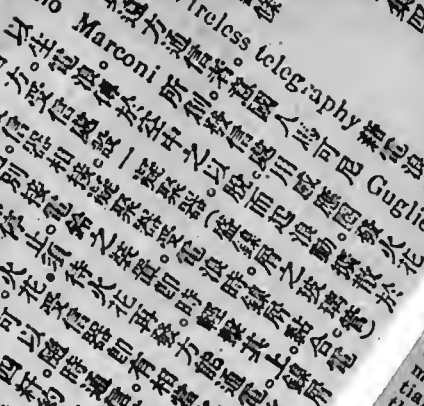 Wireless telegraphy 藉電浪
方通信者。意國人馬可尼 Guglie
Marconi 所創。發信處用感應圈發火花
以生電浪。傳於空中之以脫而起浪動。擴散於
方。受信處設一凝聚器(盛鎳屑之玻璃管)
信器相接。凝聚器受電浪時。鎳屑黏合。電
別接電鈴之裝置。即時 其上。鎳屑
停止。須待火花再發。方能通電。
火花。受信器即有相當
可以隨時通
四